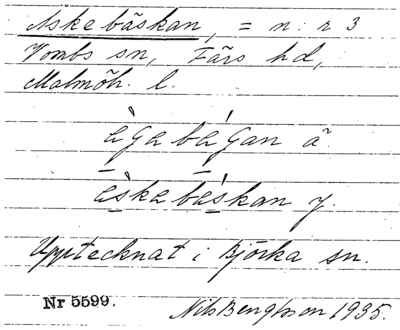 Äskebäskan, = n:r 3
Vombs sn, Färs hd,
Malmöh. l.
ägebägan ä.
äskebäskan y.
Upptecknat i Björka sn.
Nr 5599.
Nils Bengtsson 1935.